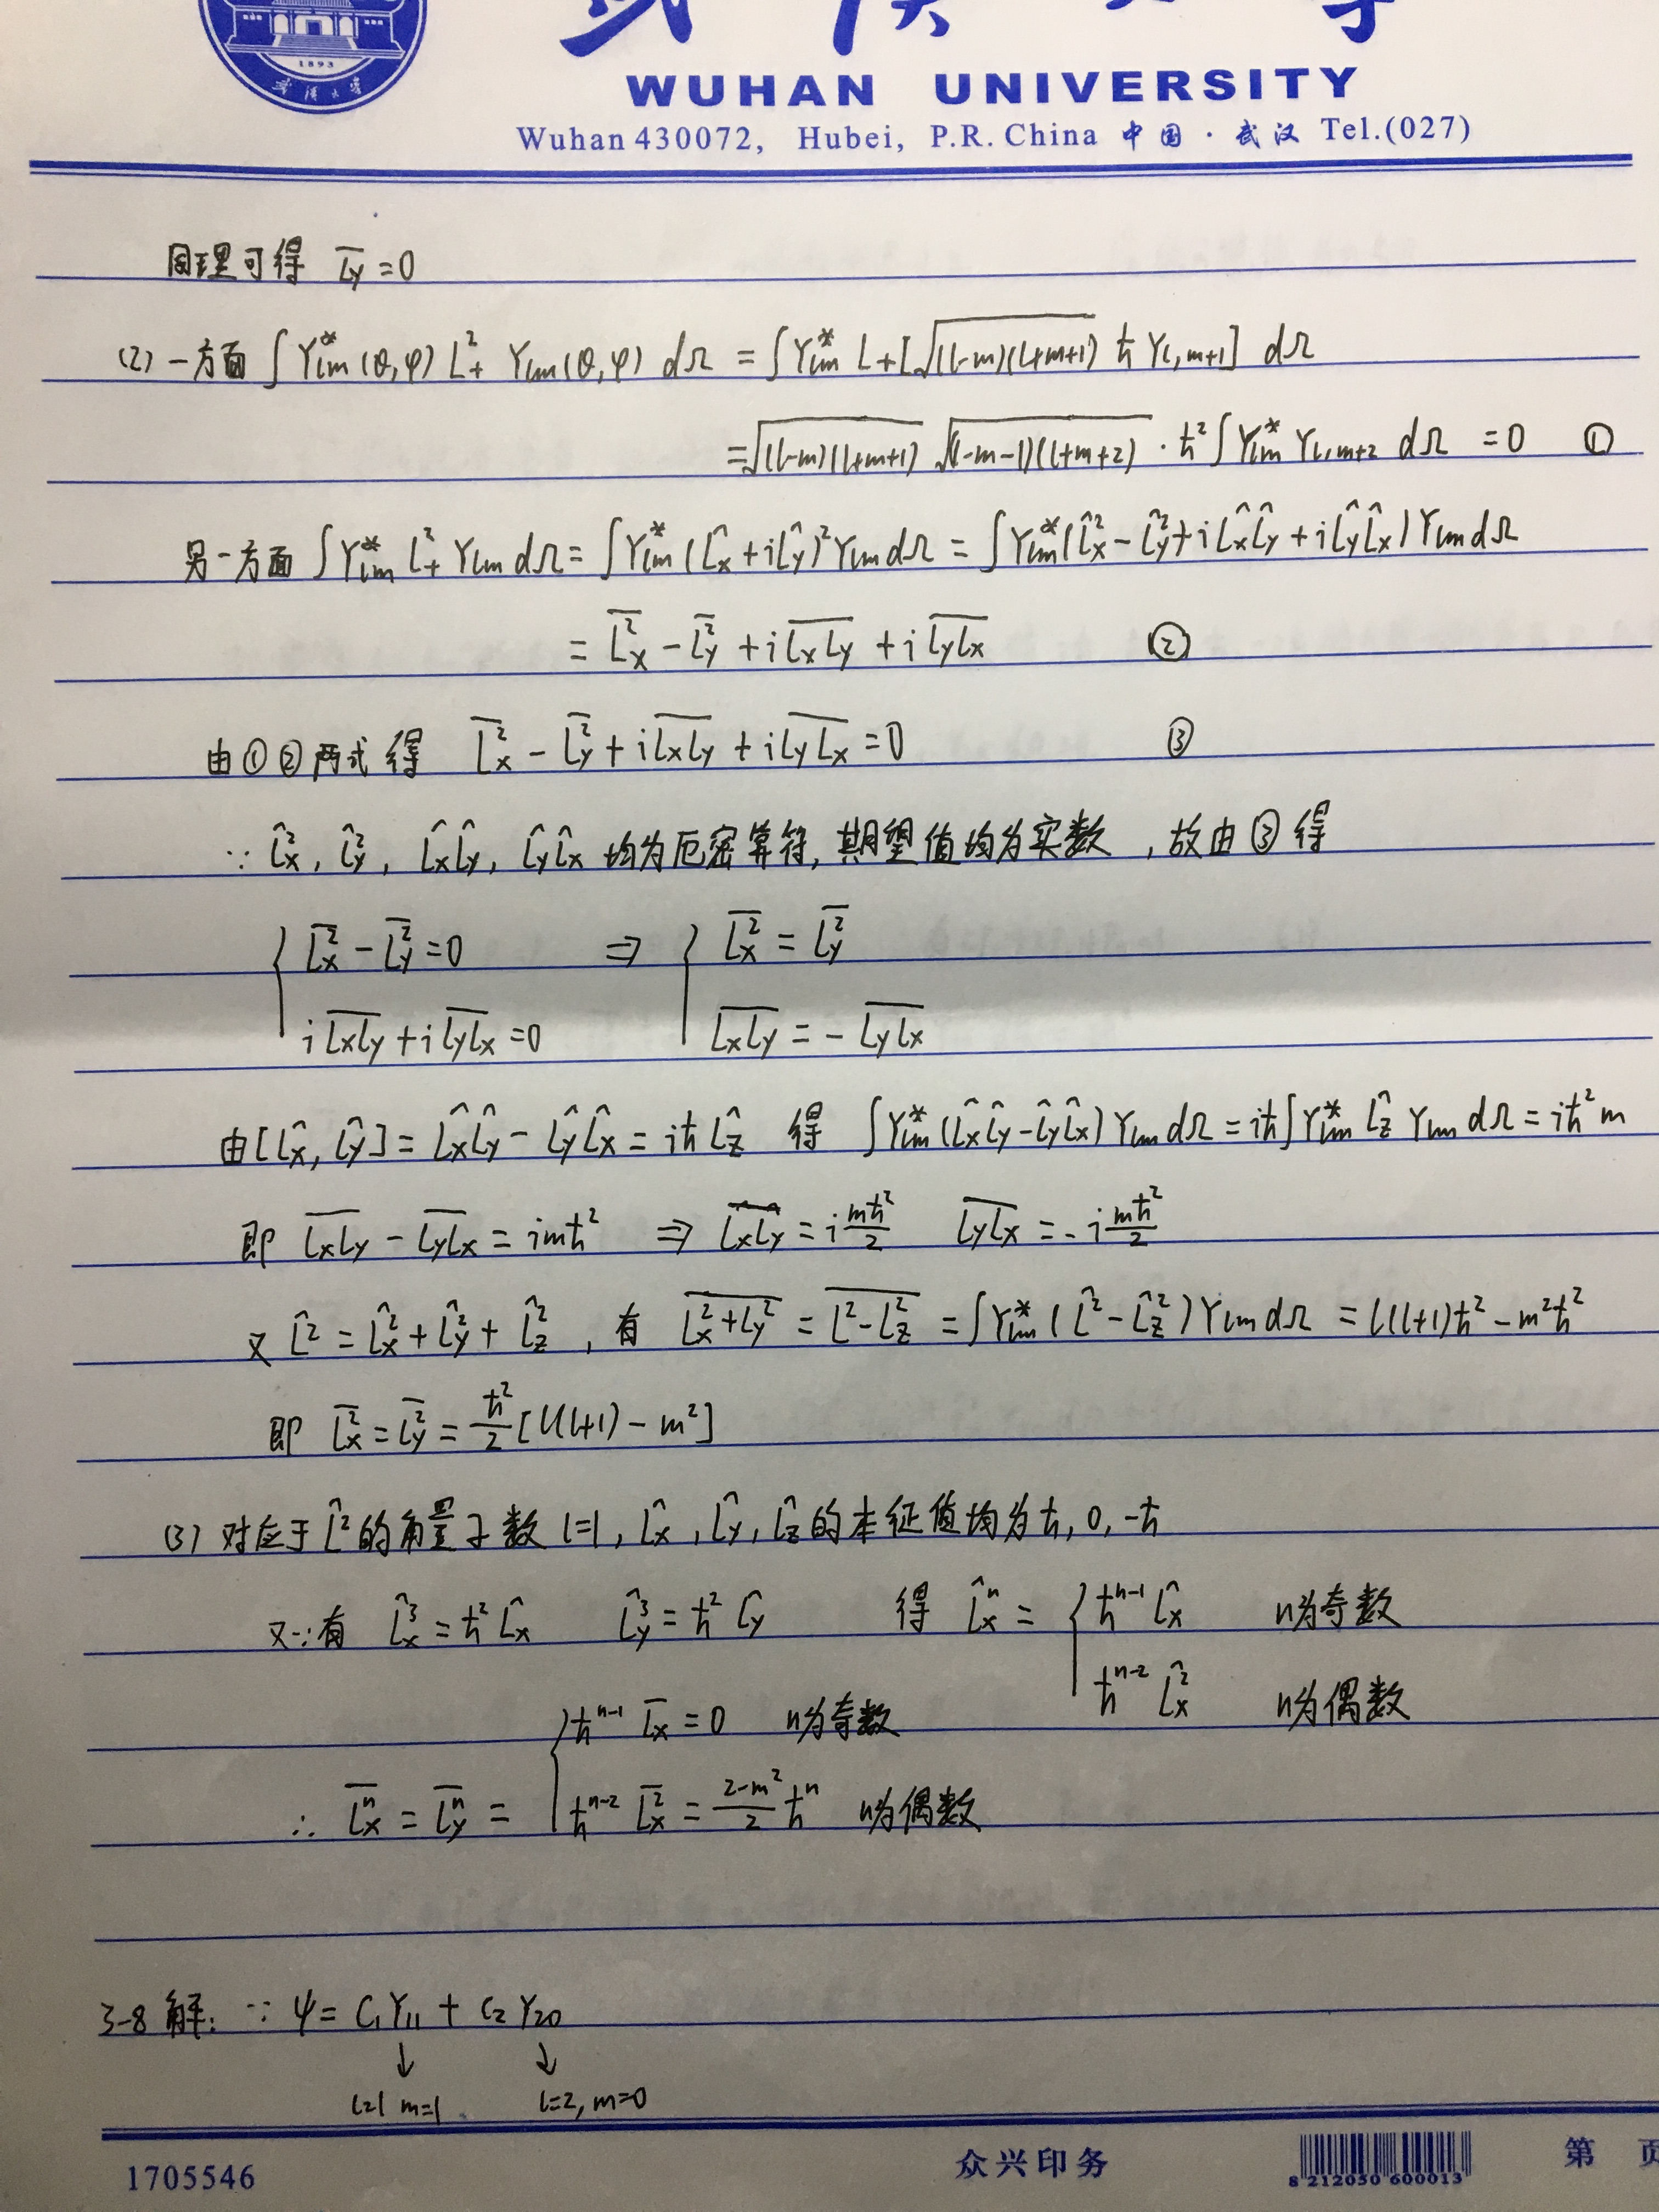 1893
武汉大学
WUHAN UNIVERSITY
Wuhan 430072, Hubei, P.R. China 中国·武汉 Tel.(027)
同理可得 \overline{L_y}=0
(2) 一方面 ∫Y_{lm}^*(θ,φ) L_+^2 Y_{lm}(θ,φ) dΩ = ∫Y_{lm}^* L_+[√((l-m)(l+m+1)) ħ Y_{l,m+1}] dΩ
=√((l-m)(l+m+1)) √((l-m-1)(l+m+2)) · ħ²∫Y_{lm}^* Y_{l,m+2} dΩ =0 ①
另一方面 ∫Y_{lm}^* \hat{L}_+^2 Y_{lm} dΩ = ∫Y_{lm}^*(\hat{L}_x+i\hat{L}_y)² Y_{lm} dΩ = ∫Y_{lm}^*(\hat{L}_x^2-\hat{L}_y^2+i\hat{L}_x\hat{L}_y+i\hat{L}_y\hat{L}_x) Y_{lm} dΩ
= \overline{L_x^2} - \overline{L_y^2} + i\overline{L_xL_y} + i\overline{L_yL_x} ②
由①②两式得 \overline{L_x^2} - \overline{L_y^2} + i\overline{L_xL_y} + i\overline{L_yL_x} =0 ③
∵ \hat{L}_x^2, \hat{L}_y^2, \hat{L}_x\hat{L}_y, \hat{L}_y\hat{L}_x 均为厄密算符, 期望值均为实数, 故由③得
{ \overline{L_x^2} - \overline{L_y^2} =0 ⇒ { \overline{L_x^2} = \overline{L_y^2}
i\overline{L_xL_y} + i\overline{L_yL_x} =0 \overline{L_xL_y} = - \overline{L_yL_x}
由[\hat{L}_x, \hat{L}_y] = \hat{L}_x\hat{L}_y - \hat{L}_y\hat{L}_x = iħ\hat{L}_z 得 ∫Y_{lm}^*(\hat{L}_x\hat{L}_y-\hat{L}_y\hat{L}_x) Y_{lm} dΩ = iħ∫Y_{lm}^* \hat{L}_z Y_{lm} dΩ = iħ²m
即 \overline{L_xL_y} - \overline{L_yL_x} = imħ² ⇒ \overline{L_xL_y} = i mħ²/2 \overline{L_yL_x} = -i mħ²/2
又 \hat{L}^2 = \hat{L}_x^2 + \hat{L}_y^2 + \hat{L}_z^2, 有 \overline{L_x^2+L_y^2} = \overline{L^2-L_z^2} = ∫Y_{lm}^*(\hat{L}^2-\hat{L}_z^2) Y_{lm} dΩ = l(l+1)ħ² - m²ħ²
即 \overline{L_x^2} = \overline{L_y^2} = ħ²/2 [l(l+1) - m²]
(3) 对应于\hat{L}^2的角量子数 l=1, \hat{L}_x, \hat{L}_y, \hat{L}_z的本征值均为ħ, 0, -ħ
又∵有 \hat{L}_x^3 = ħ²\hat{L}_x \hat{L}_y^3 = ħ²\hat{L}_y 得 \hat{L}_x^n = { ħ^{n-1}\hat{L}_x n为奇数
ħ^{n-2}\hat{L}_x^2 n为偶数
{ ħ^{n-1}\overline{L_x} = 0 n为奇数
∴ \overline{L_x^n} = \overline{L_y^n} = ħ^{n-2}\overline{L_x^2} = (2-m²)/2 ħ^n n为偶数
3-8 解: ∵ ψ = C_1Y_{11} + C_2Y_{20}
↓ ↓
l=1 m=1 l=2, m=0
1705546 众兴印务 8 212050 600013 第 页